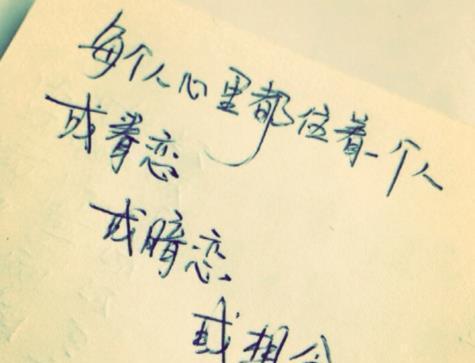 每个人心里都住着一个人
或眷恋
或暗恋
或想念